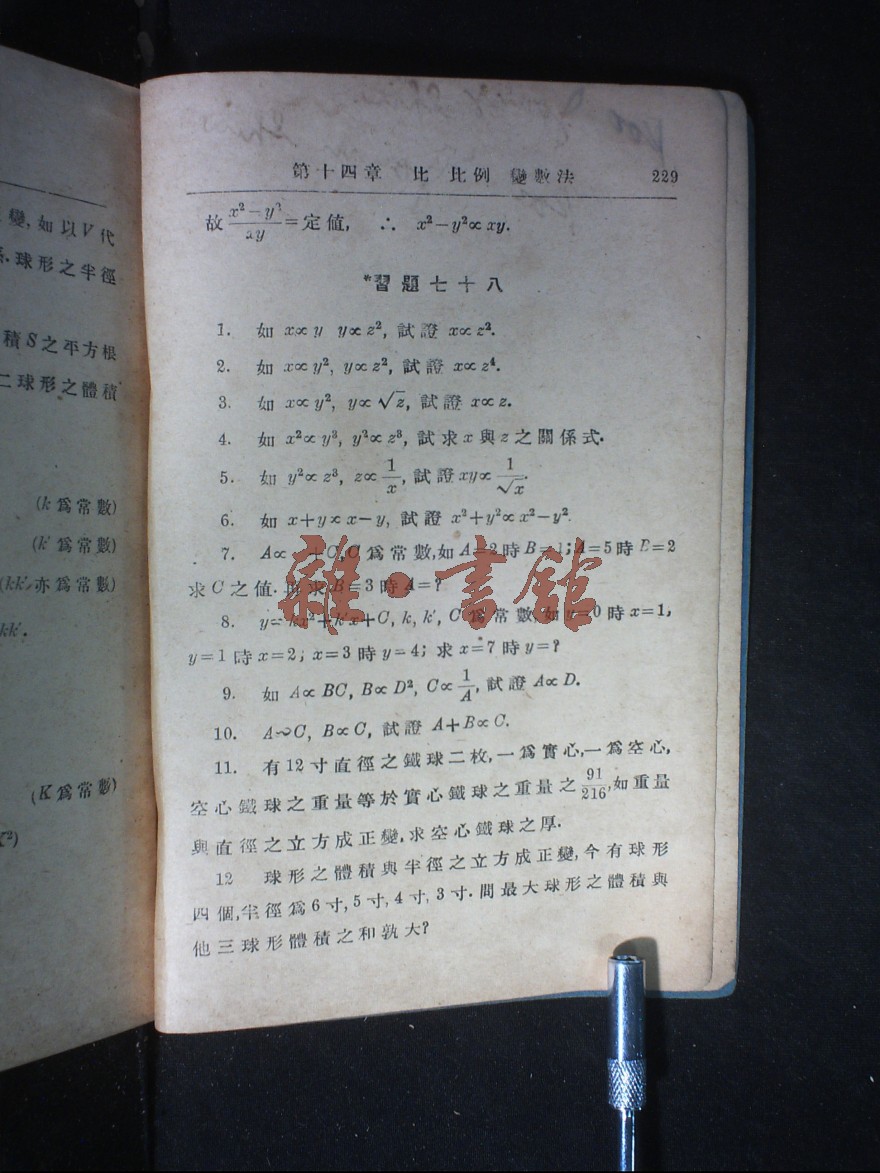 變, 如以V代
球形之半徑
積S之平方根
二球形之體積
(k爲常數)
(k′爲常數)
(kk′亦爲常數)
kk′.
(K爲常數)
第十四章 比 比例 變數法 229
故 (x²−y²)/xy = 定値, ∴ x²−y²∝xy.
*習題七十八
1. 如 x∝y y∝z², 試證 x∝z².
2. 如 x∝y², y∝z², 試證 x∝z⁴.
3. 如 x∝y², y∝√z, 試證 x∝z.
4. 如 x²∝y³, y²∝z³, 試求x與z之關係式.
5. 如 y²∝z³, z∝1/x, 試證 xy∝1/√x.
6. 如 x+y∝x−y, 試證 x²+y²∝x²−y².
7. A∝ +C, C爲常數, 如A=2時B=1; A=5時B=2
求C之値. 再求B=3時A=?
8. y=kx²+k′x+C, k, k′, C爲常數, 如y=0時x=1,
y=1時x=2; x=3時y=4; 求x=7時y=?
9. 如 A∝BC, B∝D², C∝1/A, 試證 A∝D.
10. A∝C, B∝C, 試證 A+B∝C.
11. 有12寸直徑之鐵球二枚, 一爲實心, 一爲空心,
空心鐵球之重量等於實心鐵球之重量之91/216, 如重量
與直徑之立方成正變, 求空心鐵球之厚.
12 球形之體積與半徑之立方成正變, 今有球形
四個, 半徑爲6寸, 5寸, 4寸, 3寸. 問最大球形之體積與
他三球形體積之和孰大?
雜·書館